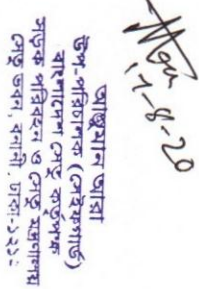 1-8-20
আঞ্জুমান আরা
উপ-পরিচালক (লেইকগার্ড)
বাংলাদেশ সেতু কর্তৃপক্ষ
সড়ক পরিবহন ও সেতু মন্ত্রণালয়
সেতু ভবন, বনানী, ঢাকা-১২১২